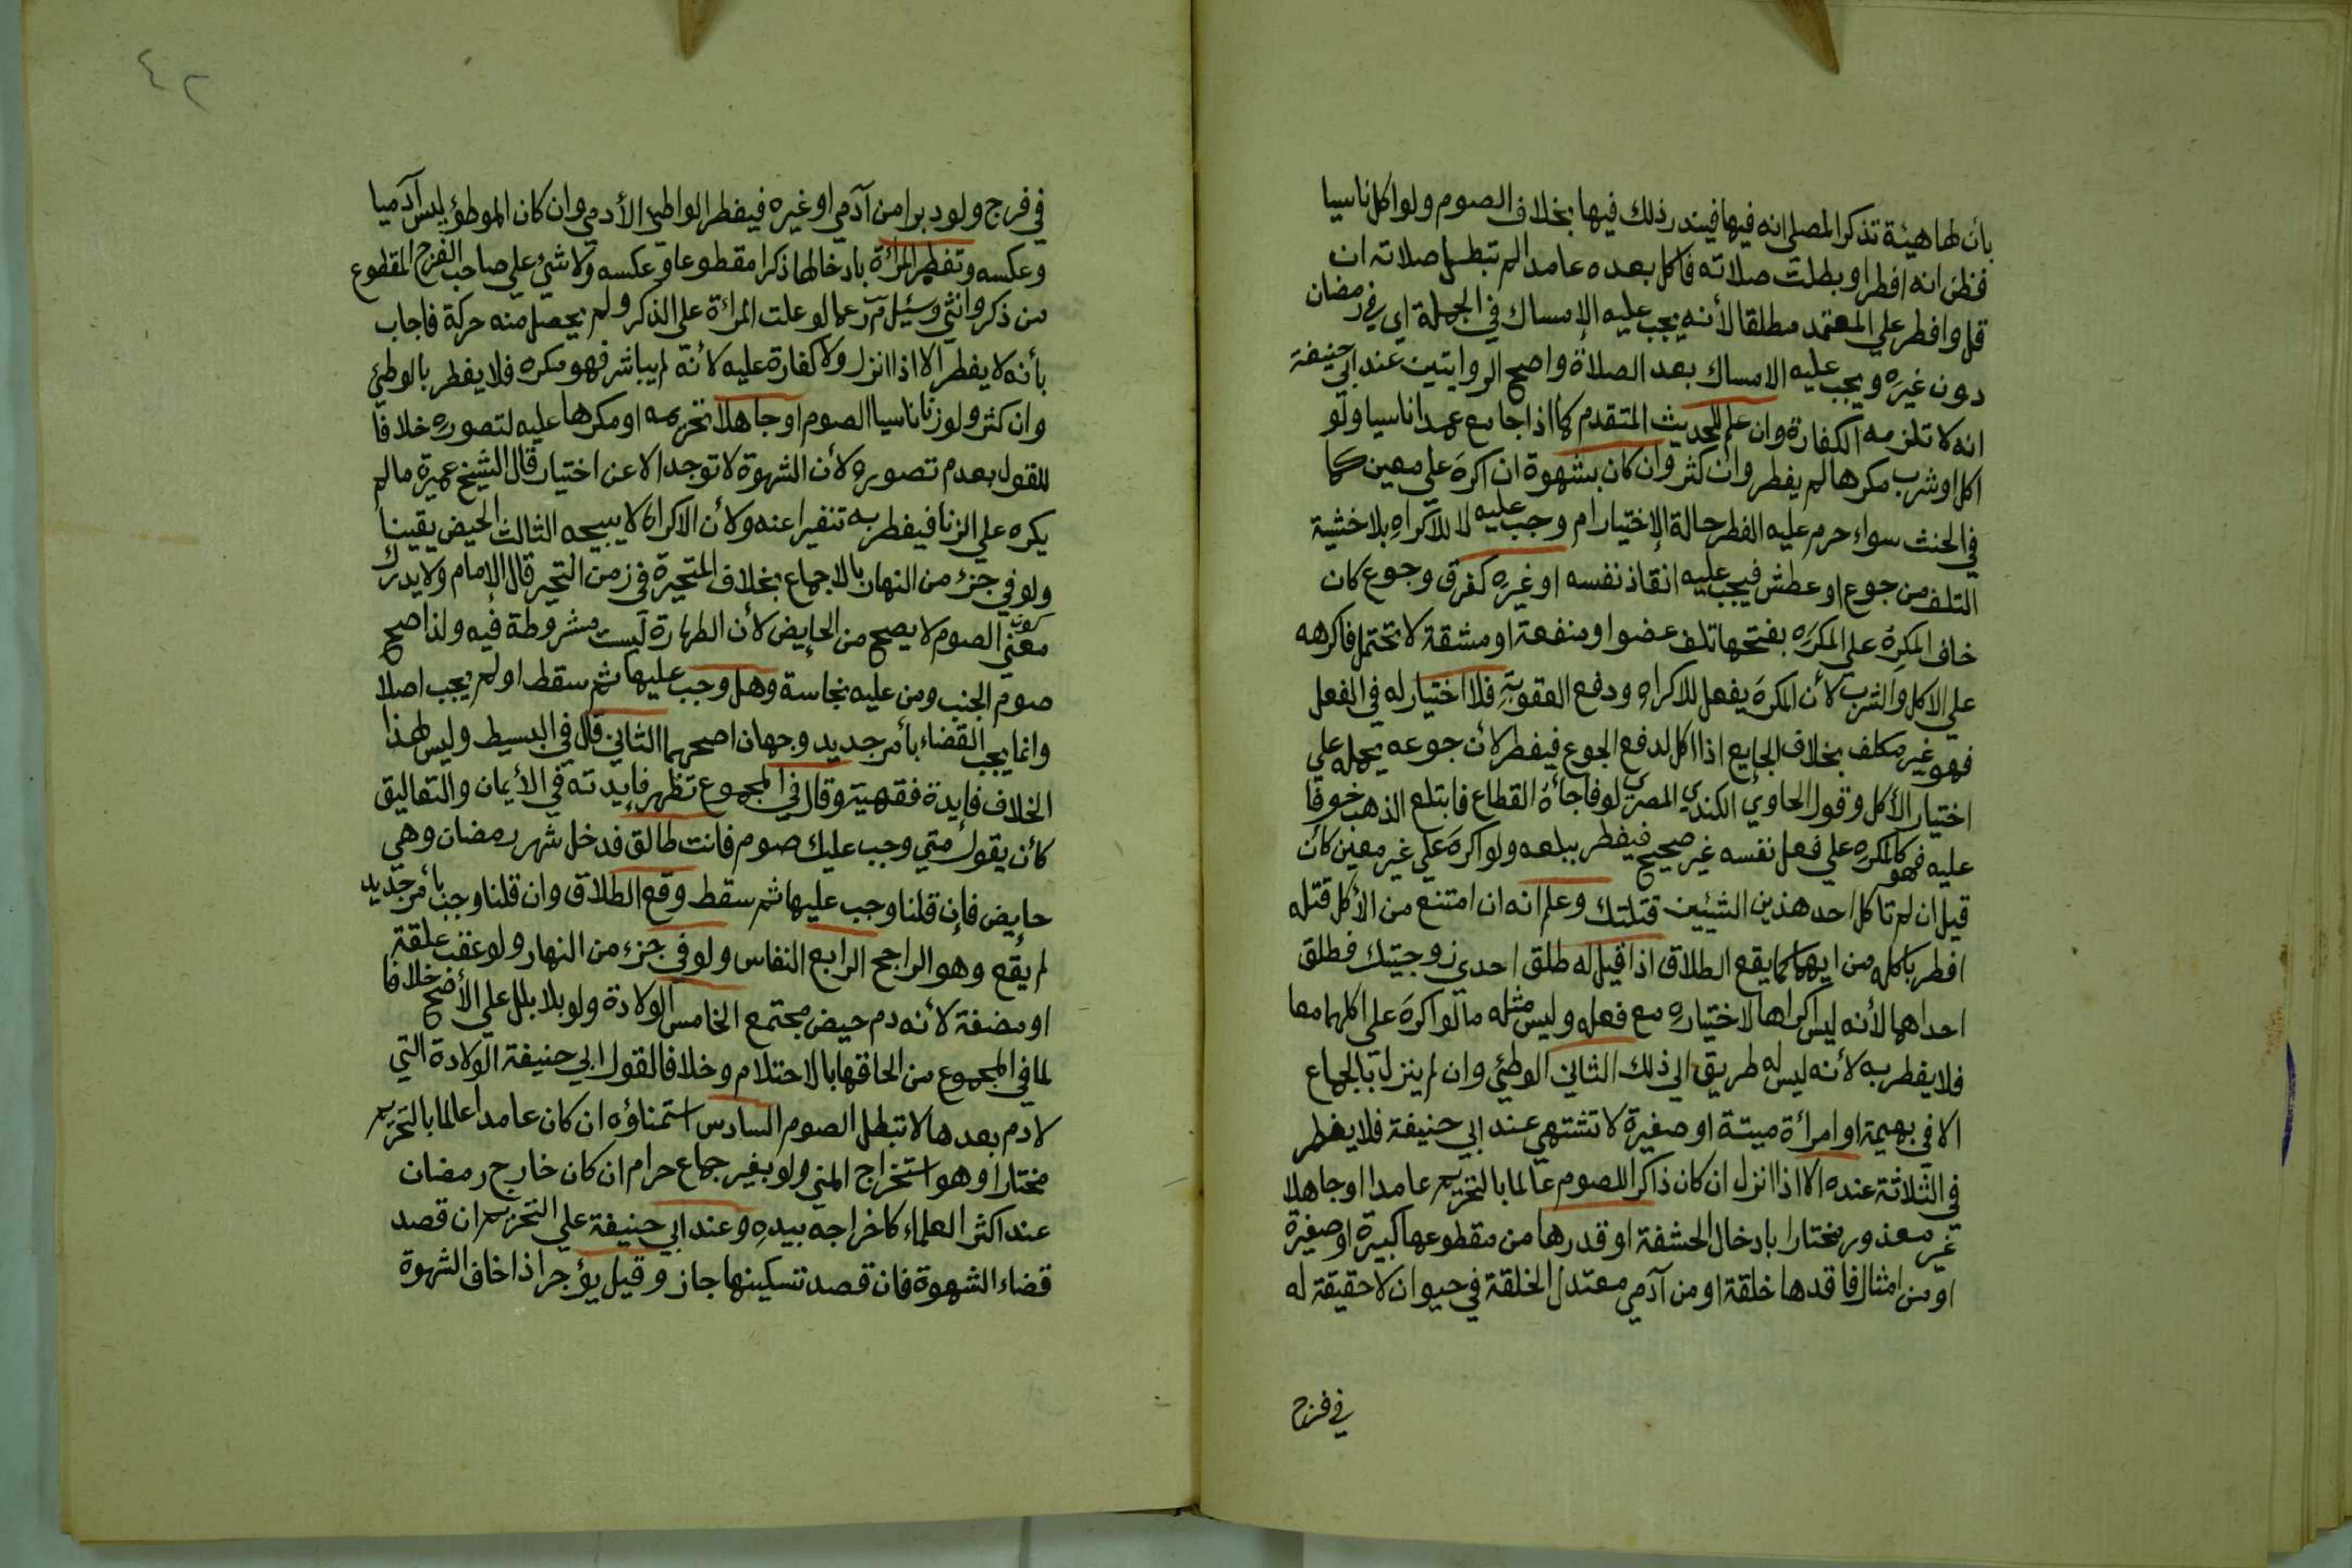 بأن لها هيئة تذكر المصلي انه فيها فيندر ذلك فيها بخلاف الصوم ولو اكل ناسيا
فظن انه افطر او بطلت صلاته فاكل بعده عامدا لم تبطل صلاته ان
قل وافطر علي المعتمد مطلقا لأنه يجب عليه الإمساك في الجملة اي في رمضان
دون غيره ويجب عليه الامساك بعد الصلاة واصح الروايتين عند ابي حنيفة
انه لا تلزمه الكفارة وان علم للحديث المتقدم كما اذا جامع عمدا ناسيا ولو
اكل او شرب مكرها لم يفطر وان كثر وان كان بشهوة ان اكره علي معين كما
في الحنث سواء حرم عليه الفطر حالة الإختيار ام وجب عليه لا للاكراه بلا خشية
التلف من جوع او عطش فيجب عليه انقاذ نفسه او غيره كغرق وجوع كان
خاف المكرِه علي المكرَه بفتحها تلف عضو او منفعة او مشقة لا تحتمل فاكرهه
علي الاكل والشرب لأن المكرَه يفعل للاكراه ودفع العقوبة فلا اختيار له في الفعل
فهو غير مكلف بخلاف الجايع اذا اكل لدفع الجوع فيفطر لأن جوعه يحمله علي
اختيار الأكل وقول الحاوي الكندي المصري لو فاجأه القطاع فابتلع الذهب خوفا
عليه فهو كالمكره علي فعل نفسه غير صحيح فيفطر ببلعه ولو اكره علي غير معين كأن
قيل ان لم تاكل احد هذين الشيئين قتلتك وعلم انه ان امتنع من الأكل قتله
افطر باكله من ايهما كما يقع الطلاق اذا قيل له طلق احدي زوجتيك فطلق
احداهما لأنه ليس اكراها لاختياره مع فعله وليس مثله ما لو اكره علي اكلهما معا
فلا يفطر به لأنه ليس له طريق الي ذلك الثاني الوطئ وان لم ينزل بالجماع
الا في بهيمة او امرأة ميتة او صغيرة لا تشتهي عند ابي حنيفة فلا يفطر
في الثلاثة عنده الا اذا انزل ان كان ذاكرا للصوم عالما بالتحريم عامدا او جاهلا
غير معذور مختارا بادخال الحشفة او قدرها من مقطوعها كبيرة او صغيرة
او من امثال فاقدها خلقة او من آدمي معتدل الخلقة في حيوان لا حقيقة له
في فرج
٤٢
في فرج ولو دبرا من آدمي او غيره فيفطر الواطئ الأدمي وان كان الموطؤ ليس آدميا
وعكسه وتفطر المرأة بادخالها ذكرا مقطوعا وعكسه ولا شئ علي صاحب الفرج المقطوع
من ذكر وانثي وسئيل م ر عما لو علت المرأة علي الذكر ولم يحصل منه حركة فاجاب
بأنه لا يفطر الا اذا انزل ولا كفارة عليه لأنه لم يباشر فهو مكره فلا يفطر بالوطئ
وان كثر ولو زنا ناسيا الصوم او جاهلا تحريمه او مكرها عليه لتصوره خلافا
للقول بعدم تصوره لأن الشهوة لا توجد الا عن اختيار قال الشيخ عميرة ما لم
يكره علي الزنا فيفطر به تنفيرا عنه ولأن الاكراه لا يبيحه الثالث الحيض يقينا
ولو في جزء من النهار بالاجماع بخلاف المتحيرة في زمن التحير قال الإمام ولا يدرك
معني كون الصوم لا يصح من الحايض لأن الطهارة ليست مشروطة فيه ولذا صح
صوم الجنب ومن عليه نجاسة وهل وجب عليها ثم سقط او لم يجب اصلا
وانما يجب القضاء بأمر جديد وجهان اصحهما الثاني قال في البسيط وليس لهذا
الخلاف فايدة فقهية وقال في المجموع تظهر فايدته في الأيمان والتعاليق
كأن يقول متي وجب عليك صوم فانت طالق فدخل شهر رمضان وهي
حايض فإن قلنا وجب عليها ثم سقط وقع الطلاق وان قلنا وجب بأمر جديد
لم يقع وهو الراجح الرابع النفاس ولو في جزء من النهار ولو عقب علقة
او مضغة لأنه دم حيض مجتمع الخامس الولادة ولو بلا بلل علي الأصح خلافا
لما في المجموع من الحاقها بالاحتلام وخلافا لقول ابي حنيفة الولادة التي
لا دم بعدها لا تبطل الصوم السادس استمناؤه ان كان عامدا عالما بالتحريم
مختارا وهو استخراج المني ولو بغير جماع حرام ان كان خارج رمضان
عند اكثر العلماء كاخراجه بيده وعند ابي حنيفة علي التحريم ان قصد
قضاء الشهوة فان قصد تسكينها جاز وقيل يؤجر اذا خاف الشهوة